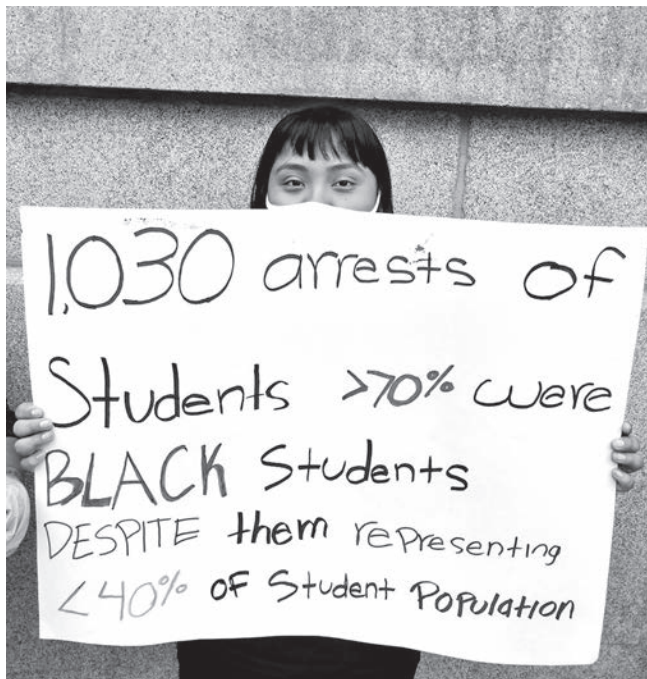 1,030 arrests of
Students >70% were
BLACK Students
DESPITE them representing
<40% OF Student POPULATION